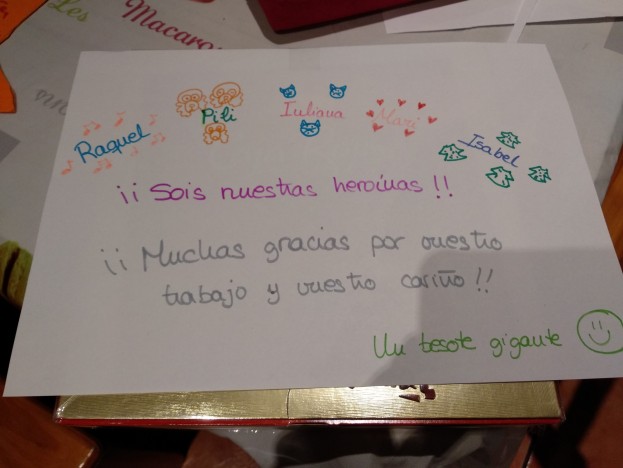 Les
Macaro
Raquel
Pili
Iuliana
Mari
Isabel
¡¡ Sois nuestras heroínas !!
¡¡ Muchas gracias por vuestro
trabajo y vuestro cariño !!
Un besote gigante